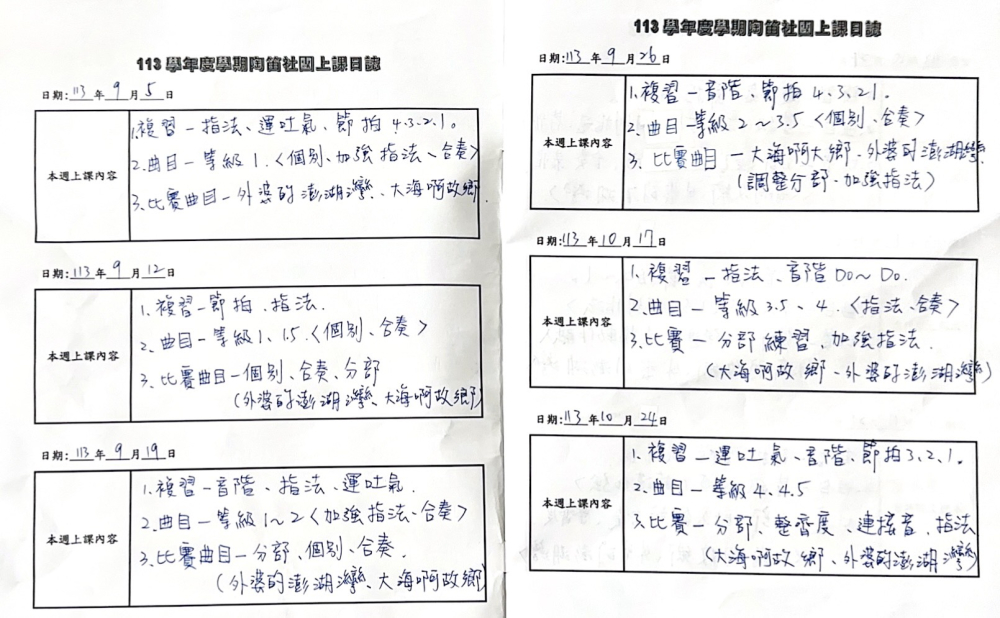 113學年度學期陶笛社團上課日誌
日期:113年9月5日
本週上課內容
1.複習－指法、運吐氣、節拍4.3.2.1。
2.曲目－等級1.〈個別、加強指法、合奏〉
3.比賽曲目－外婆的澎湖灣、大海啊故鄉.
日期:113年9月12日
本週上課內容
1.複習－節拍、指法.
2.曲目－等級1、1.5.〈個別、合奏〉
3.比賽曲目－個別、合奏、分部
(外婆的澎湖灣、大海啊故鄉)
日期:113年9月19日
本週上課內容
1.複習－音階、指法、運吐氣.
2.曲目－等級1～2〈加強指法、合奏〉
3.比賽曲目－分部、個別、合奏.
(外婆的澎湖灣、大海啊故鄉)
113學年度學期陶笛社團上課日誌
日期:113年9月26日
本週上課內容
1.複習－音階、節拍4.3.21。
2.曲目－等級2～3.5〈個別、合奏〉
3.比賽曲目－大海啊大鄉、外婆的澎湖灣
(調整分部、加強指法)
日期:113年10月17日
本週上課內容
1.複習－指法、音階Do～Do.
2.曲目－等級3.5、4.〈指法、合奏〉
3.比賽－分部練習、加強指法.
(大海啊故鄉、外婆的澎湖灣)
日期:113年10月24日
本週上課內容
1.複習－運吐氣、音階、節拍3、2、1。
2.曲目－等級4、4.5
3.比賽－分部、整齊度、連接音、指法
(大海啊故鄉、外婆的澎湖灣)